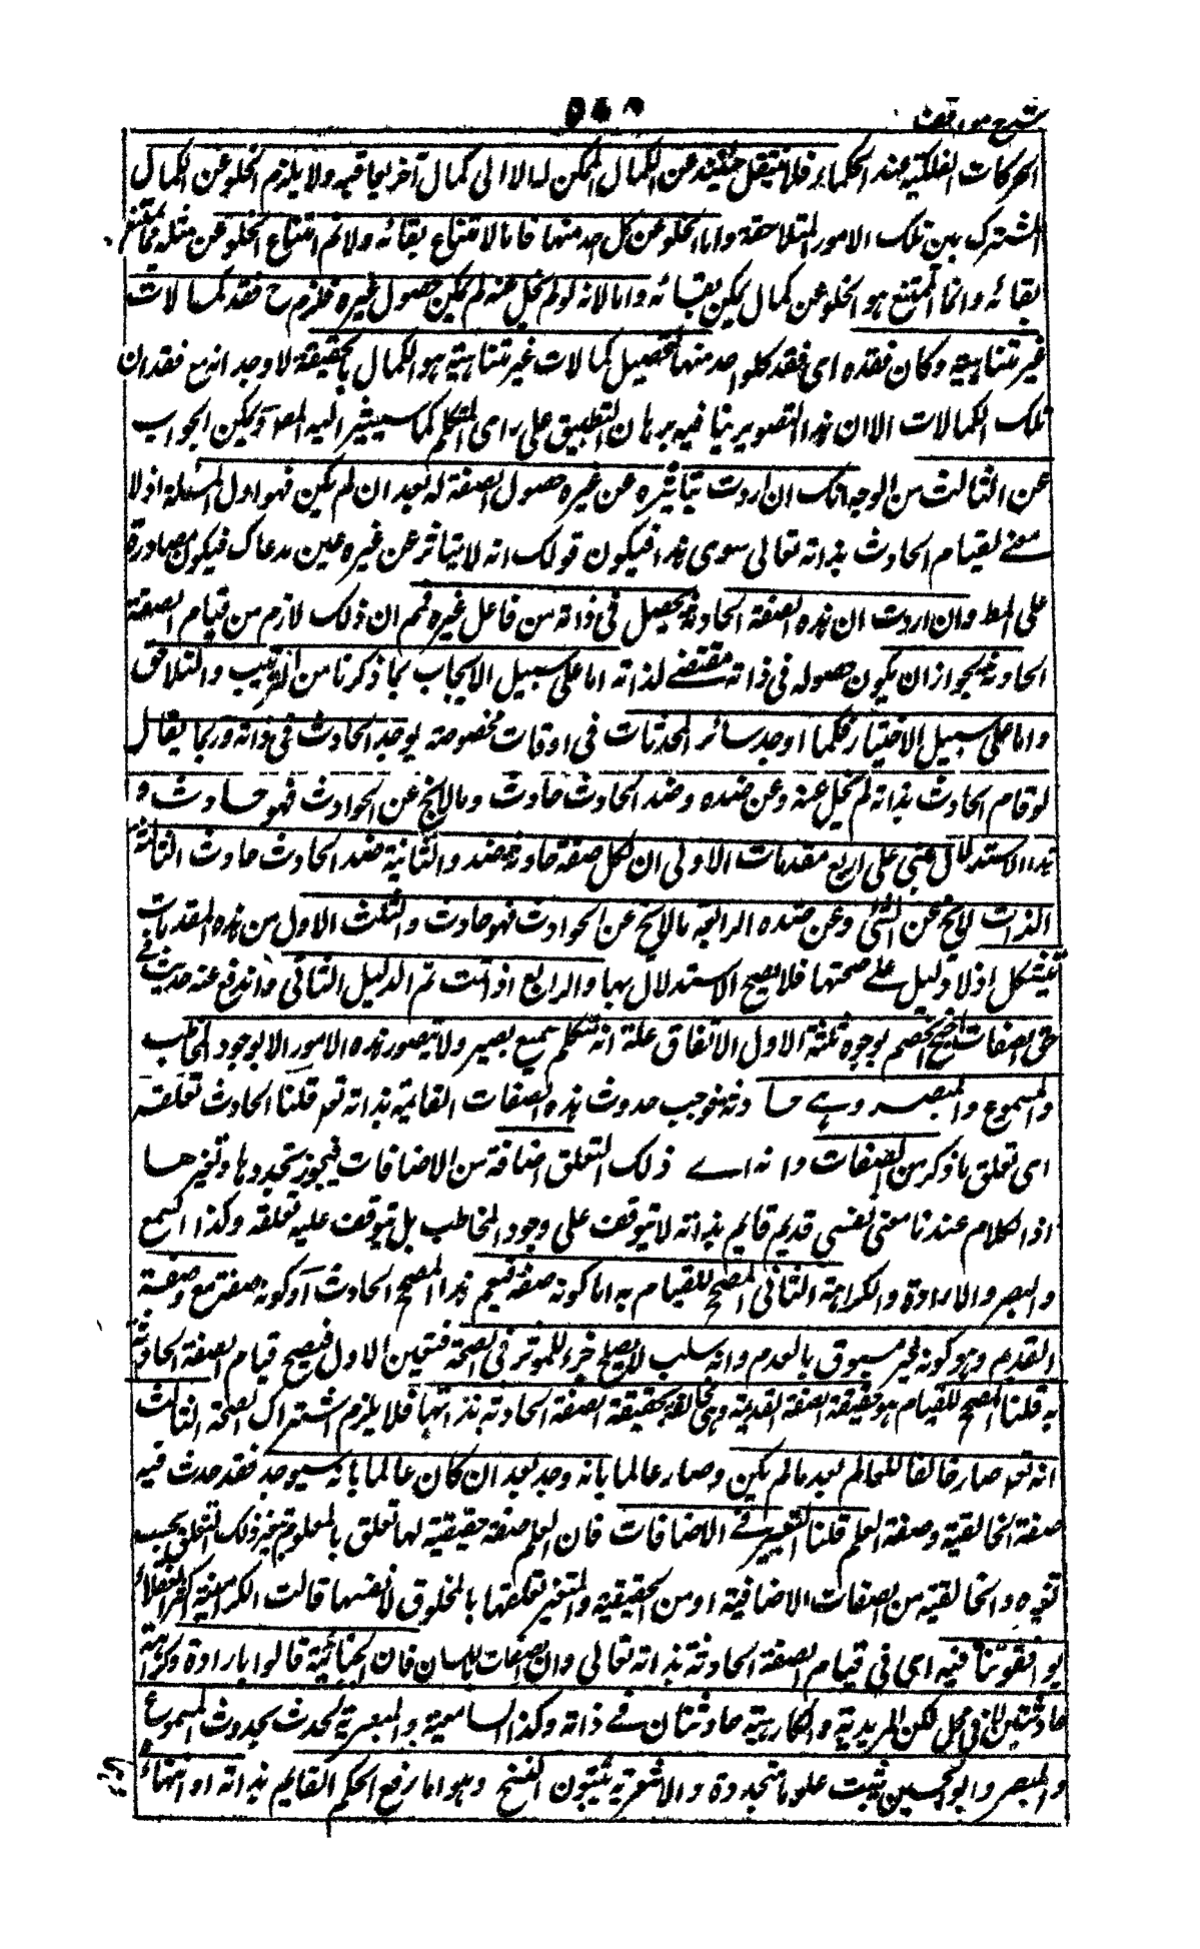 شرح مواقف
الحركات الفلكية عند الحكماء فلا ينتقل حينئذ عن الكمال الممكن له الا الى كمال آخر يعاقبه ولا يلزم الخلو عن الكمال
المشترك بين تلك الامور المتلاحقة واما الخلو عن كل واحد منها فانا لامتناع بقائه ولا نم امتناع الخلو عن مثله مما يمتنع
بقائه وانما الممتنع هو الخلو عن كمال يمكن بقائه واما لانه لو لم يخل عنه لم يمكن حصول غيره فلزم ح فقد كمالات
غير متناهية وكان فقده اى فقد كلواحد منها لتحصيل كمالات غير متناهية هو الكمال بالحقيقة لا وجدانه مع فقدان
تلك الكمالات الا ان هذا التصوير ينافيه برهان التطبيق على راى المتكلم كما سيشير اليه المصـ ويمكن الجواب
عن الثالث من الوجه انك ان اردت بتاثيره عن غيره حصول الصفة له بعد ان لم يكن فهو اول المسئلة اذ لا
معنے لقيام الحادث بذاته تعالى سوى هذا فيكون قولك انه لا يتاثر عن غيره عين مدعاك فيكون مصادرة
على المط وان اردت ان هذه الصفة الحادثة تحصل فى ذاته من فاعل غيره فمم ان ذلك لازم من قيام الصفة
الحادثة لجواز ان يكون حصوله فى ذاته مقتضے لذاته اما على سبيل الايجاب بما ذكرنا من الترتيب والتلاحق
واما على سبيل الاختيار فكما اوجد سائر المحدثات فى اوقات مخصوصة يوجد الحادث فى ذاته وربما يقال
لو قام الحادث بذاته لم يخل عنه وعن ضده وضد الحادث حادث وما لا يخ عن الحوادث فهو حادث و
هذا الاستدلال يبنى على اربع مقدمات الاولى ان لكل صفة حادثة ضد والثانية ضد الحادث حادث الثالثة
الذات لا يخ عن الشئ وعن ضده الرابعة ما لا يخ عن الحوادث فهو حادث والثلث الاول من هذه المقدمات
مشكل اذ لا دليل علے صحتها فلا يصح الاستدلال بها والرابع اذ اتمت تم الدليل الثانى واندفع عنه حديث تلاحق
الصفات احتج الخصم بوجوه ثلثة الاول الاتفاق علے انه متكلم سميع بصير ولا يتصور هذه الامور الا بوجود المخاطب
والمسموع والمبصر وہے حادثة فوجب حدوث هذه الصفات القائمة بذاته تعہ قلنا الحادث تعلقه
اى تعلق ما ذكر من الصفات وانه اے ذلك التعلق اضافة من الاضافات فيجوز تجددها وتغيرها
اذ الكلام عندنا معنى نفسى قديم قايم بذاته لا يتوقف على وجود المخاطب بل يتوقف عليه تعلقه وكذا السمع
والبصر والارادة والكراهة الثانى المصحح للقيام به اما كونه صفة فيعم هذا المصحح الحادث او كونه صفة مع وصفة
القدم وهو كونه غير مسبوق بالعدم وانه سلب لا يصلح جزء للموثر فى الصحة فتعين الاول فيصح قيام الصفة الحادثة
به قلنا المصحح للقيام هو حقيقة الصفة القديمة وهى مخالفة لحقيقة الصفة الحادثة بذاتها فلا يلزم اشتراك الصحة الثالث
انه تعہ صار خالقا للعالم بعد ما لم يكن وصار عالما بانه وجد بعد ان كان عالما بانه سيوجد فقد حدث فيه
صفة الخالقية وصفة العلم قلنا التغيير فے الاضافات فان العلم صفة حقيقية لها تعلق بالمعلوم يتغير ذلك التعلق بحسب
تغيره والخالقية من الصفات الاضافية او من الحقيقية والمتغير تعلقها بالمخلوق لا نفسها قالت الكرامية اكثر العقلاء
يوافقوننا فيه اى فى قيام الصفة الحادثة بذاته تعالى وان انكروه باللسان فان الجبائية قالوا بارادة وكراهة
حادثتين لا فى محل لكن المريدية والكارهية حادثتان فے ذاته وكذا السامعية والمبصرية تحدث بحدوث المسموع
والمبصر وابو الحسين يثبت علوما متجددة والاشعرية يثبتون النسخ وهو اما رفع الحكم القايم بذاته او انتهائه